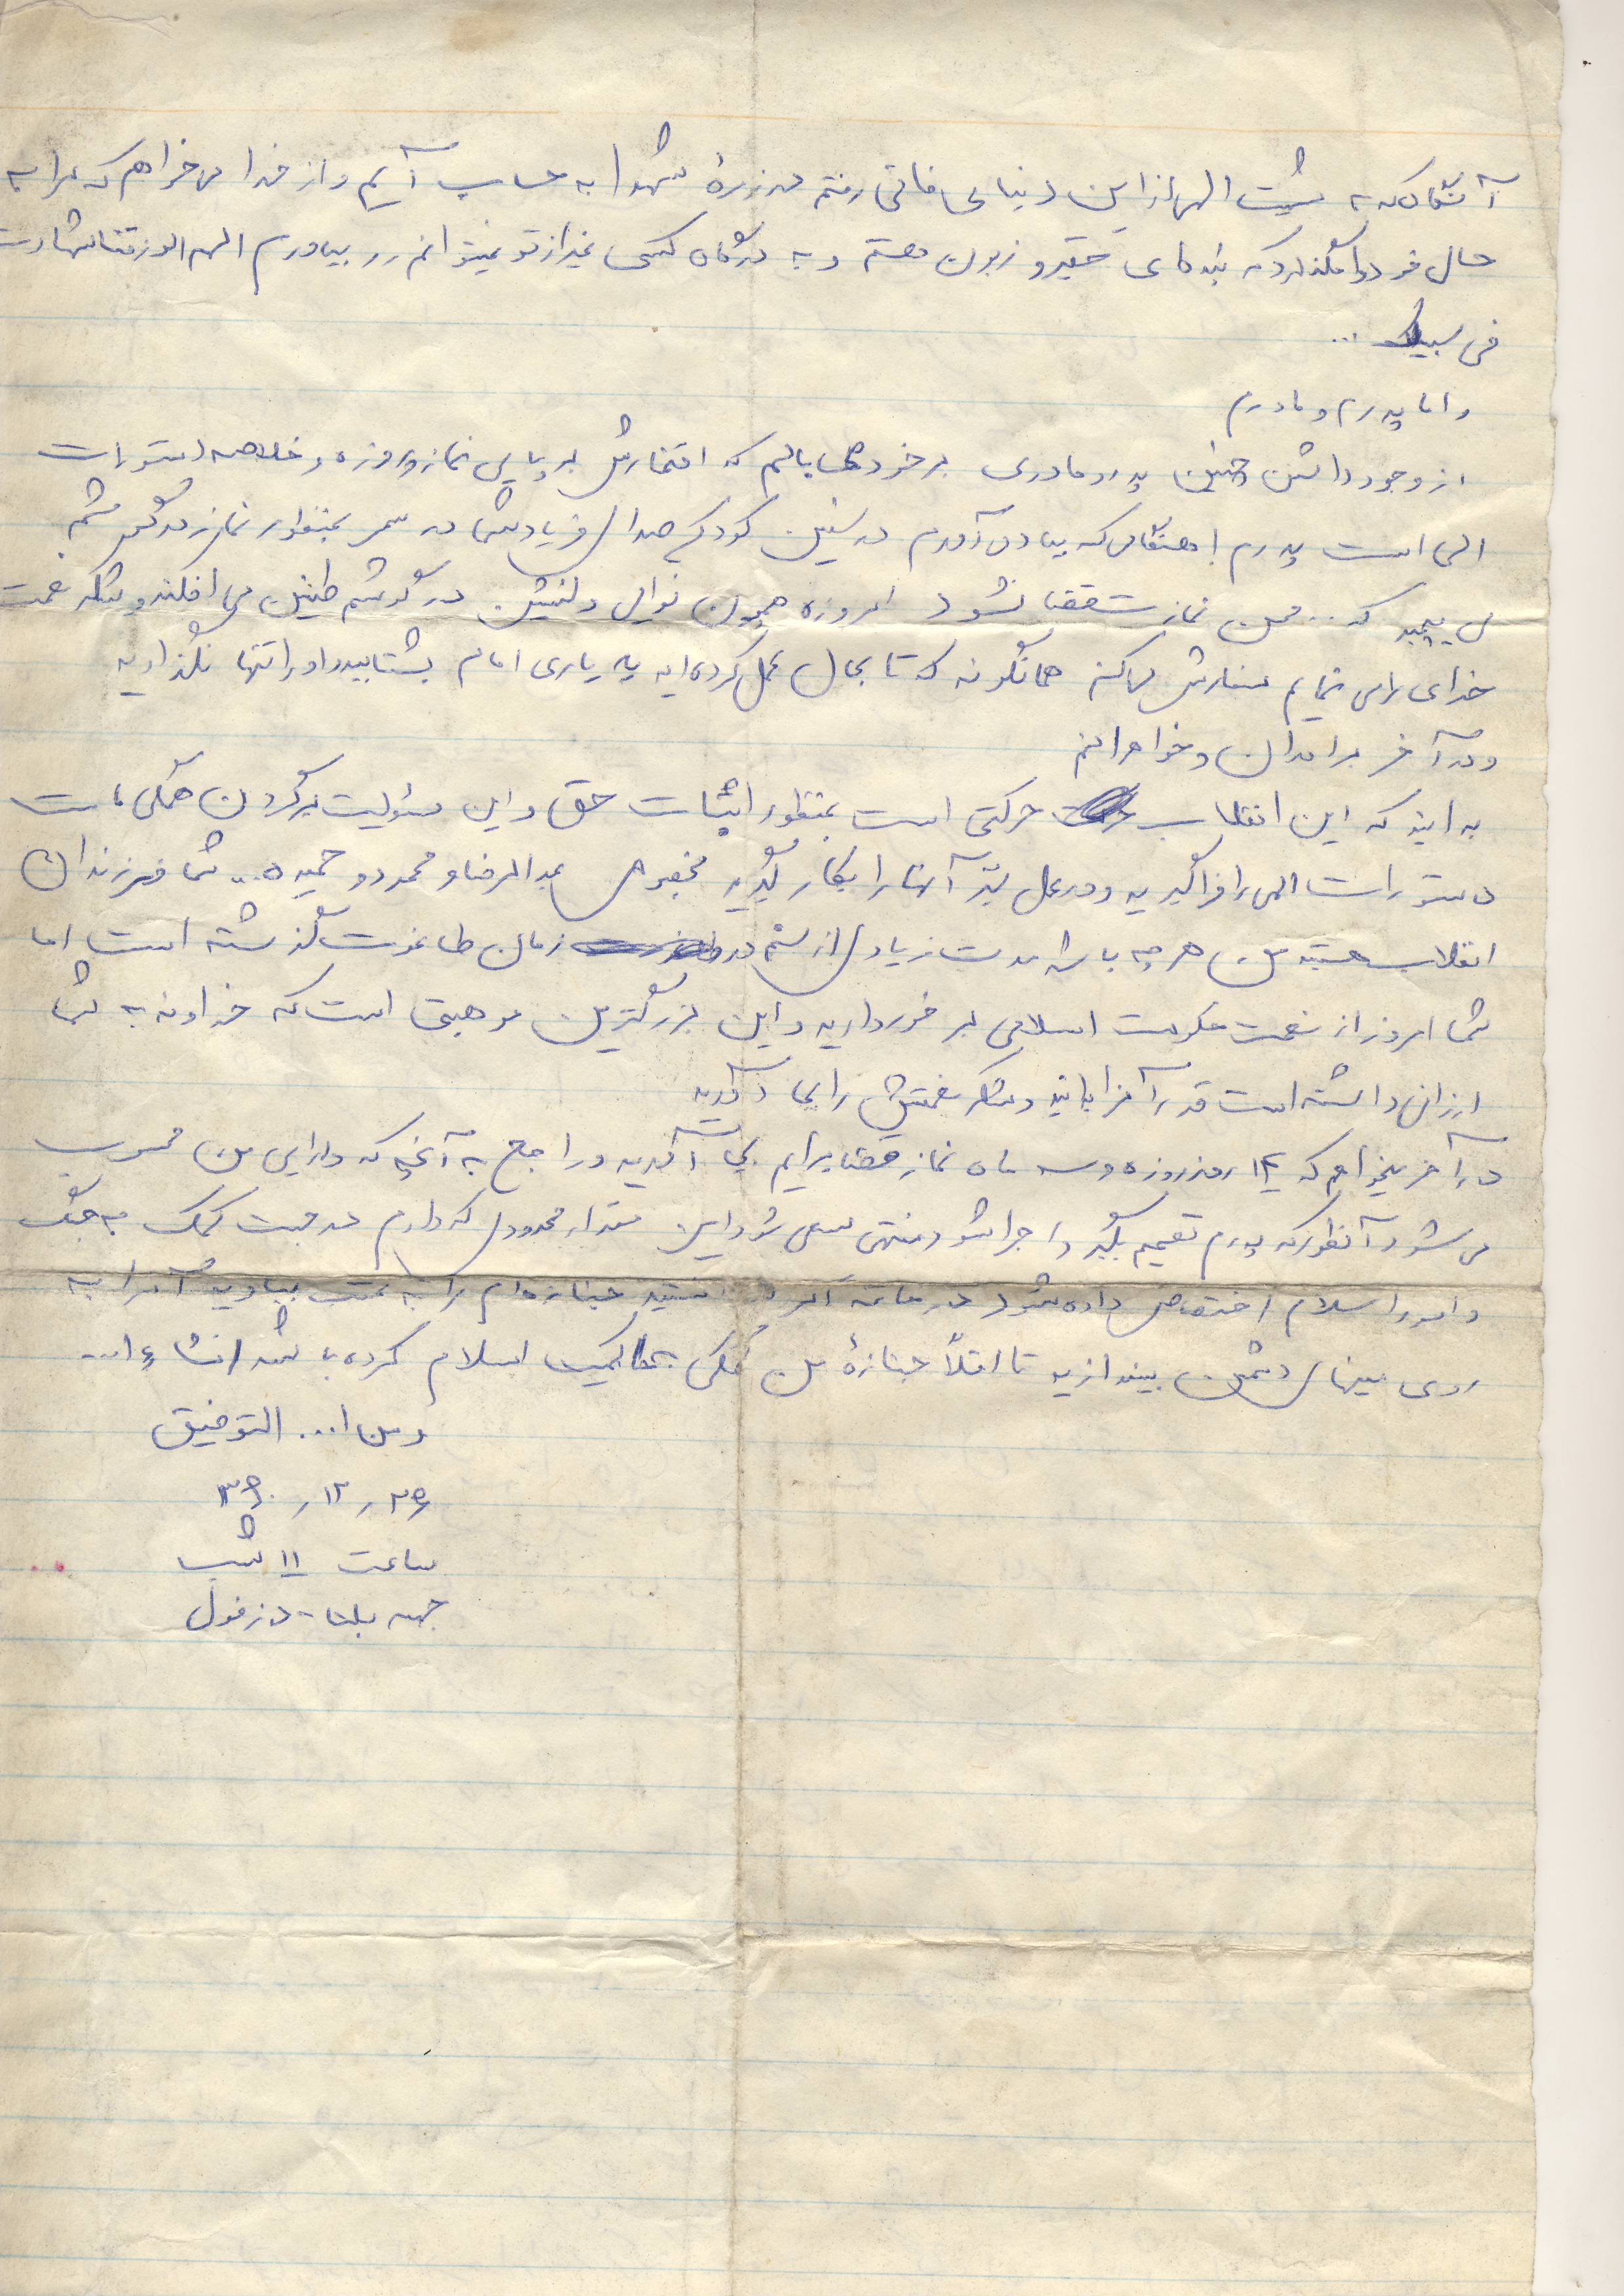 آنگاه که به مشیت الهی از این دنیای فانی رفتم در زمرهٔ شهدا به حساب آیم و از خدا می خواهم که مرا به
حال خود وامگذارد که بنده ای حقیر و زبون هستم و به درگاه کسی غیر از تو نمیتوانم رو بیاورم اللهم الرزقنا شهادت
فی سبیلک ...
و اما پدرم و مادرم
از وجود داشتن چنین پدر و مادری بر خود می بالم که افتخارش بر پایی نماز و روزه و خلاصه دستورات
الهی است پدرم! هنگامی که بیاد می آورم در سنین کودکی صدای فریادش در سحر بمنظور نماز در گوشم
می پیچید که .. محسن نمازت قضا نشود امروزه همچون نوای دلنشین در گوشم طنین می افکند و شکر نعمت
خدای را می نمایم سفارش می کنم همانگونه که تا بحال عمل کرده اید به یاری امام بشتابید و او را تنها نگذارید
و در آخر برادران و خواهرانم
بدانید که این انقلاب حرکتی است بمنظور اثبات حق و این مسئولیت بر گردن همگی ماست
دستورات الهی را فراگیرید و در عمل نیز آنها را بکار گیرید مخصوصا عبدالرضا و محمود و حمیده .. شما فرزندان
انقلاب هستید من هر چه باشد مدت زیادی از سنم در زمان طاغوت گذشته است اما
شما امروز از نعمت حکومت اسلامی بر خوردارید و این بزرگترین موهبتی است که خداوند به شما
ارزانی داشته است قدر آنرا بدانید و شکر نعمتش را بجا آورید
در آخر میخواهم که ۱۴ روز روزه و سه ماه نماز قضا برایم بجا آورید و راجع به آنچه که دارایی من محسوب
می شود آنطور که پدرم تصمیم بگیرد اجرا شود منتهی سعی شود این مقدار محدودی که دارم در جهت کمک به جنگ
و امور اسلام اختصاص داده شود در خاتمه اگر جنازه ام را به عقب بیاورید آنرا به
روی مینهای دشمن بیندازید تا اقلاً جنازهٔ من کمکی به حاکمیت اسلام کرده باشد انشاء ا...
و من ا... التوفیق
۲۶ ر ۱۲ ر ۳۶۰
ساعت ۱۱ شب
جبهه بلتا - دزفول